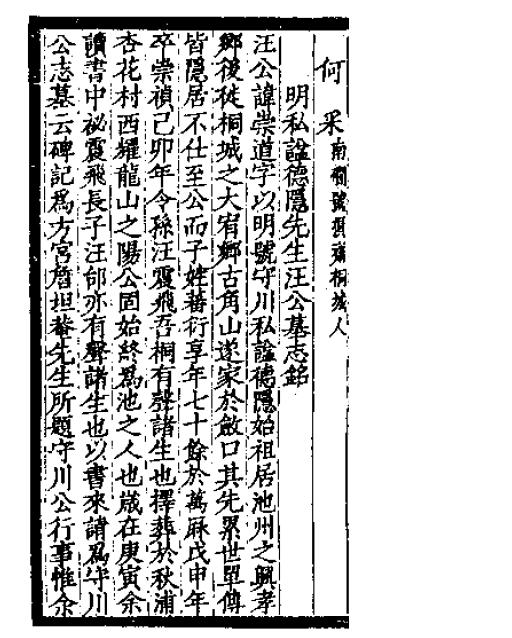 何采南澗號省齋桐城人
明私諡德隱先生汪公墓志銘
汪公諱崇道字以明號守川私諡德隱始祖居池州之興孝
鄉後徙桐城之大宥鄉古角山遂家於斂口其先累世單傳
皆隱居不仕至公而子姓蕃衍享年七十餘於萬厤戊申年
卒崇禎己卯年令孫汪震飛吾桐有聲諸生也擇葬於秋浦
杏花村西耀龍山之陽公固始終爲池之人也歲在庚寅余
讀書中祕震飛長子汪郃亦有聲諸生也以書來請爲守川
公志墓云碑記爲方宮詹坦菴先生所題守川公行事惟余